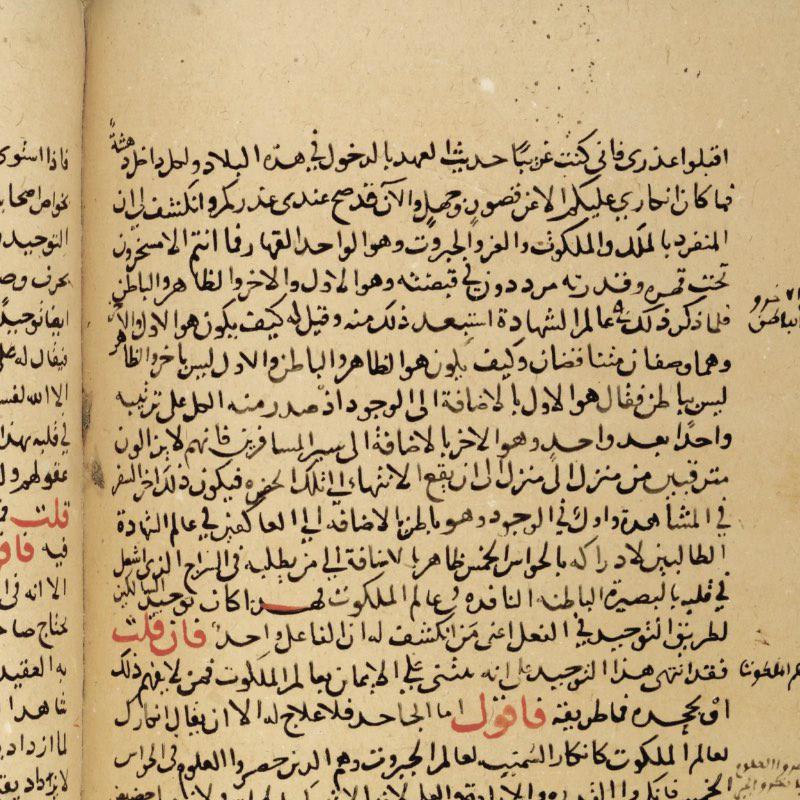 اقبلوا عذري فاني كنت غريبًا حديث العهد بالدخول في هذه البلاد ولكل داخل دهشةً
فما كان انكاري عليكم الا عن قصورٍ وجهلٍ والآن قد صح عندي عذركم وانكشف لي ان
المنفرد بالملك والملكوت والعز والجبروت وهو الواحد القهار فما انتم الا مسخرون
تحت قهره وقدرته مرددون في قبضته وهو الاول والاخر والظاهر والباطن
فلما ذكر ذلك في عالم الشهادة استبعد ذلك منه وقيل له كيف يكون هو الاول والآخر
وهما وصفان متناقضان وكيف يكون هو الظاهر والباطن والاول ليس باخر والظاهر
ليس بباطن فقال هو الاول بالاضافة الى الوجود اذ صدر منه الكل على ترتيبه
واحدًا بعد واحد وهو الاخر بالاضافة الى سير المسافرين فانهم لا يزالون
مترقيين من منزل الى منزل الى ان يقع الانتهاء الى تلك الحضره فيكون ذلك اخر السفر
في المشاهدة واول في الوجود وهو باطن بالاضافه الى العاكفين في عالم الشهادة
الطالبين لادراكه بالحواس الخمس ظاهر بالاضافة الى من يطلبه في السراج الذي اشتعل
في قلبه بالبصيرة الباطنه النافده في عالم الملكوت فهـكذا كان توحيد السالكين
لطريق التوحيد في الفعل اعني من انكشف له ان الفاعل واحد فان قلت
فقد انتهى هذا التوحيد على انه مبتنى على الايمان بعالم الملكوت فمن لا يفهم ذلك
او يجحده فما طريقه فاقول اما الجاحد فلا علاج له الا ان يقال انكارك
لعالم الملكوت كانكار السمنيه لعالم الجبروت وهم الذين حصروا العلوم في الحواس
الخمس فانكروا القدره والارادة والعلم
فاذا استوى
التوحيد
بحرف
فيقال له
الا الله
في قلبه بهذا
عقولهم
قلت
فيه فاقول
الا انه في
يحتاج
به العقيد
شاهدا
لما ازداد